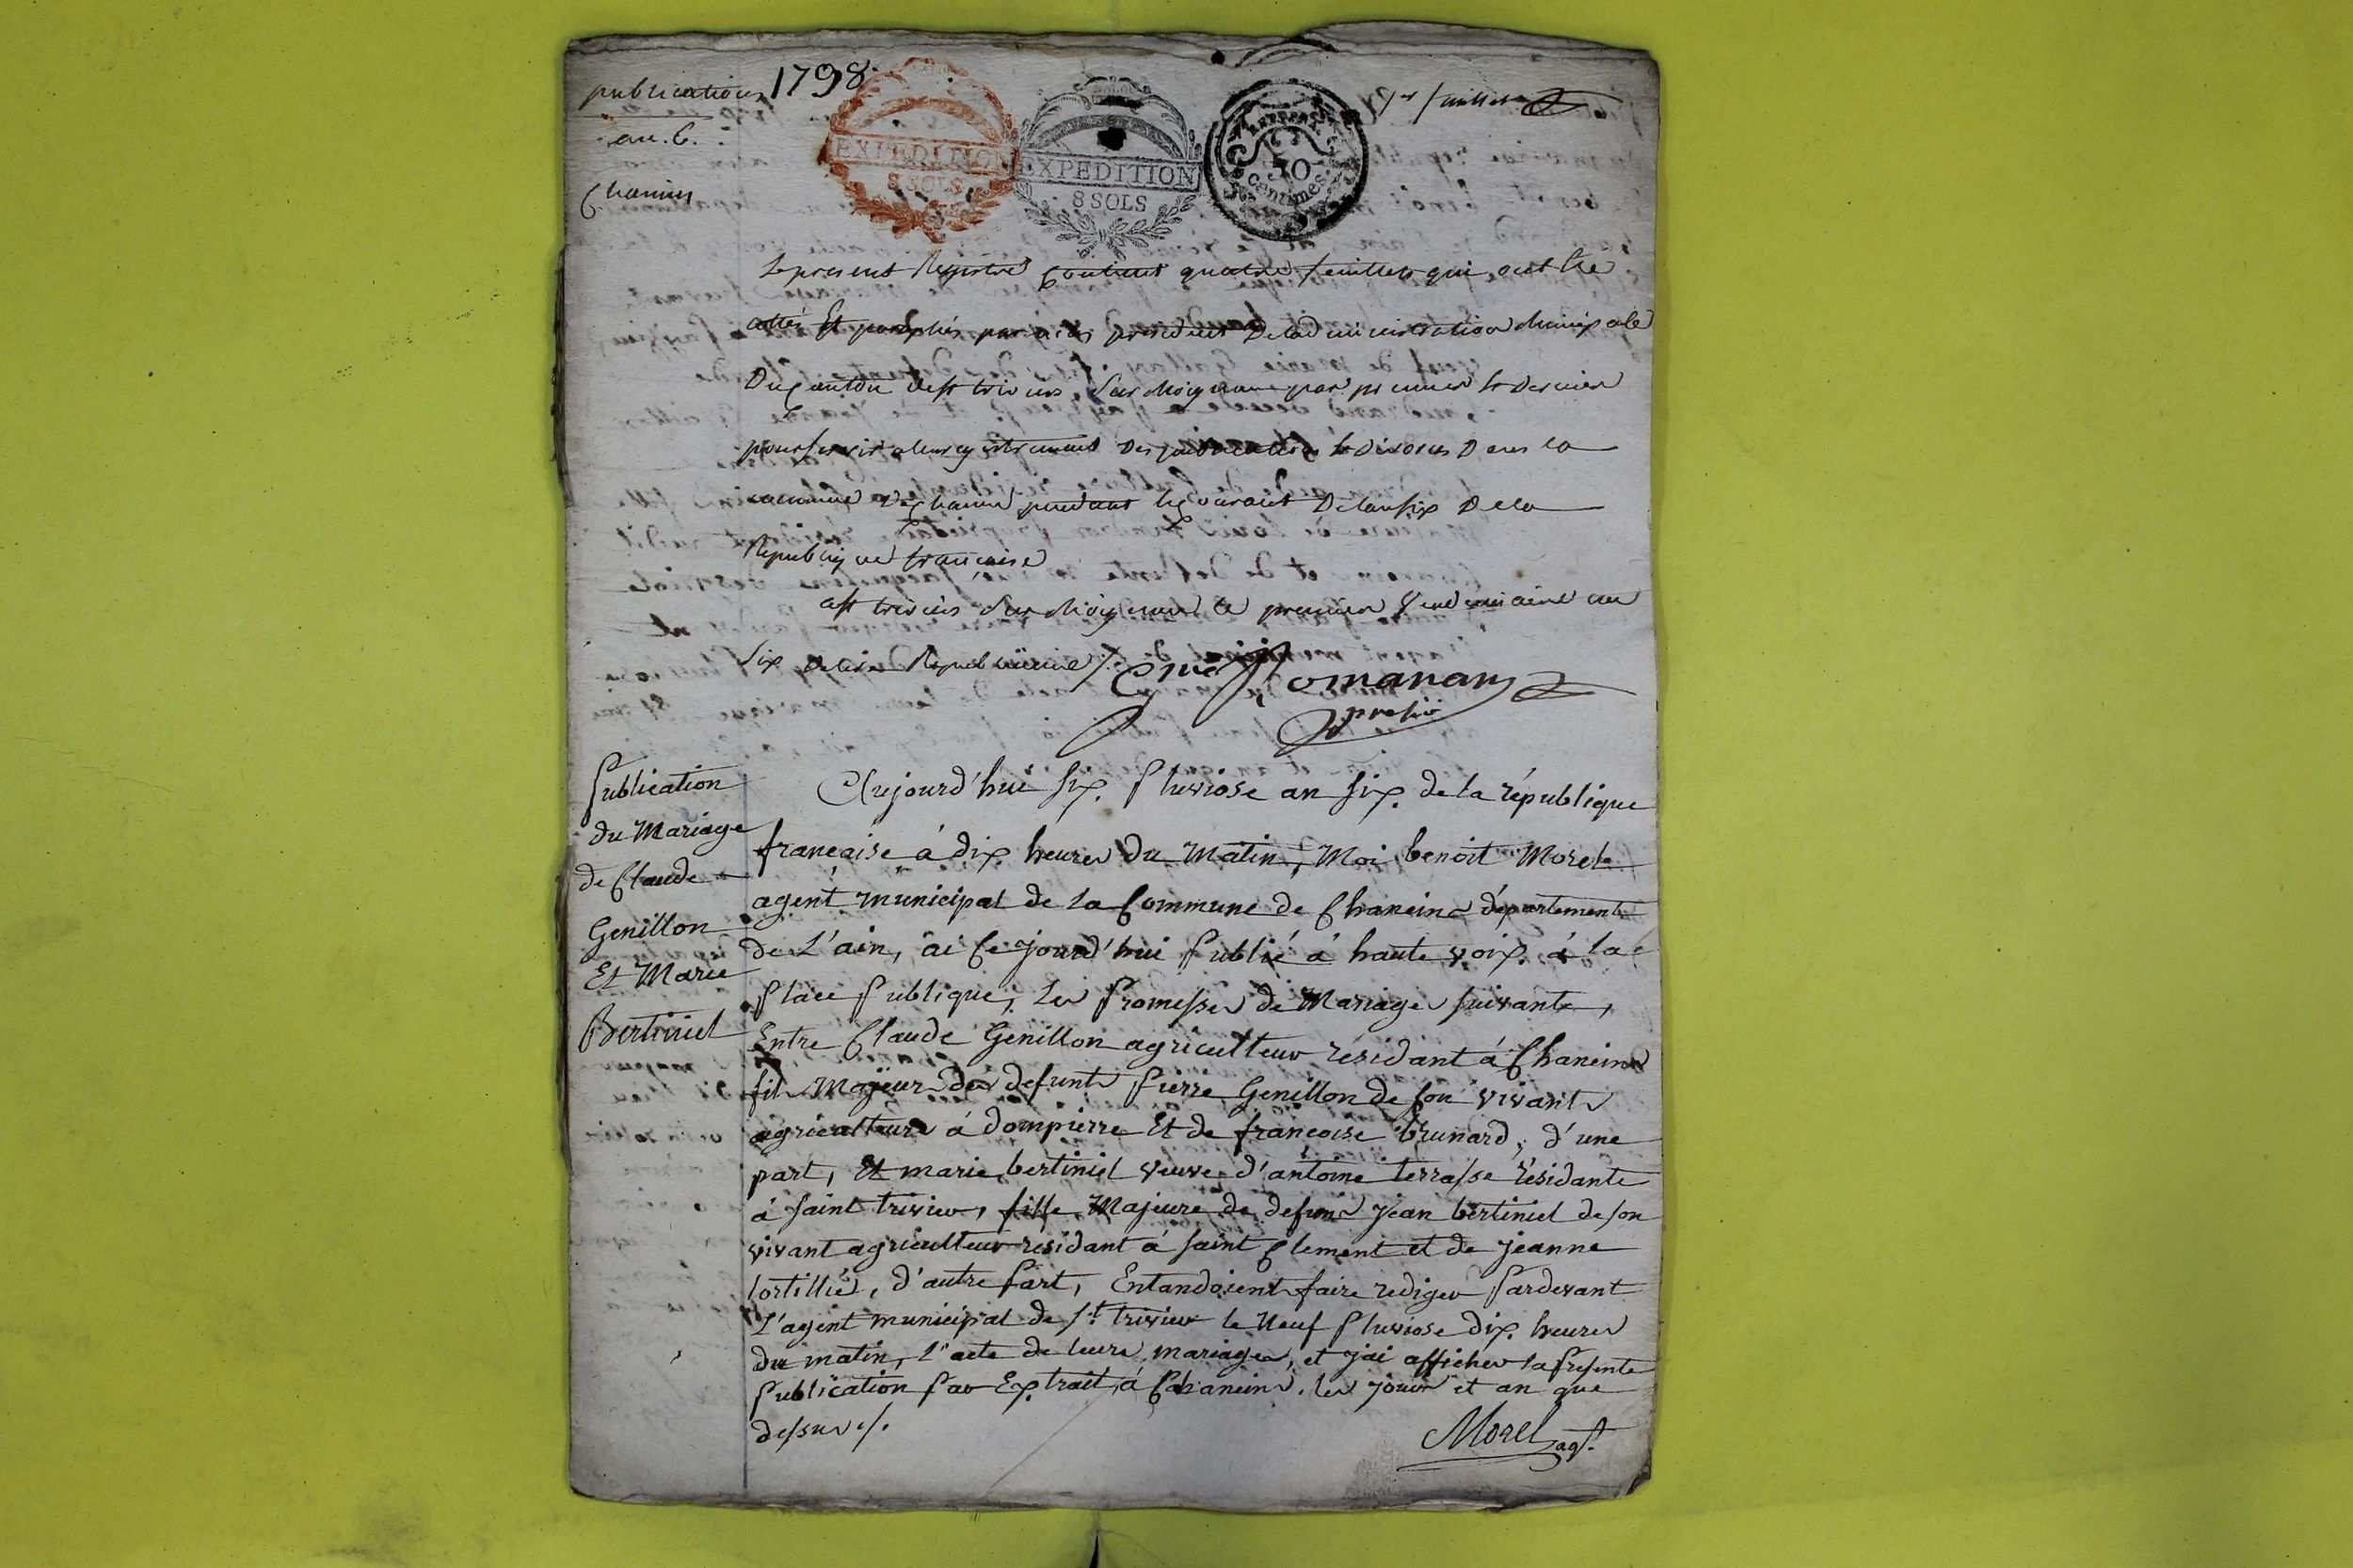 publications 1798
an. 6.
Chanins
1er feuillet
EXPEDITION
8 SOLS
EXPEDITION
8 SOLS
50
centimes
Le present Registre Contient quatre feuillets qui ont été
cottés Et paraphés par moi president De ladministration Municipale
Du Canton de st trivier Sur Moignans par premier & Dernier
pour servir a lenregistrement Des publications & Divorces Dans la
commune de Chanins pendant le Courant De lan six De la
Republique française
a st triviers Sur Moignans le premier Vendemiaire an
six de lere Republicaine /.
Romanans
presid
Publication
du Mariage
de Claude
Genillon
Et Marie
Bertiniel
Aujourd'hui six Pluviose an six de la république
francaise à dix heures du Matin, Moi benoit Morel
agent municipal de la Commune de Chaneins département
de L'ain, ai Ce jourd'hui Publié à haute voix à la
Place Publique, Les Promesses de Mariages suivants,
Entre Claude Genillon agriculteur résidant à Chaneins
fils Majeur de defunts Pierre Genillon de son vivant
agriculteur à dompierre Et de francoise brunard, d'une
part, Et marie bertiniel veuve d'antoine terrasse résidante
à saint trivier, fille Majeure de defuns jean bertiniel de son
vivant agriculteur residant à saint Clement et de jeanne
tortillié, d'autre Part, Entandoient faire rediger Pardevant
L'agent municipal de St trivier le Neuf Pluviose dix heures
du matin, l'acte de leurs mariages, et j'ai afficher la Presente
Publication Par Extrait à Chaneins, les jours et an que
dessus /.
Morel agt.